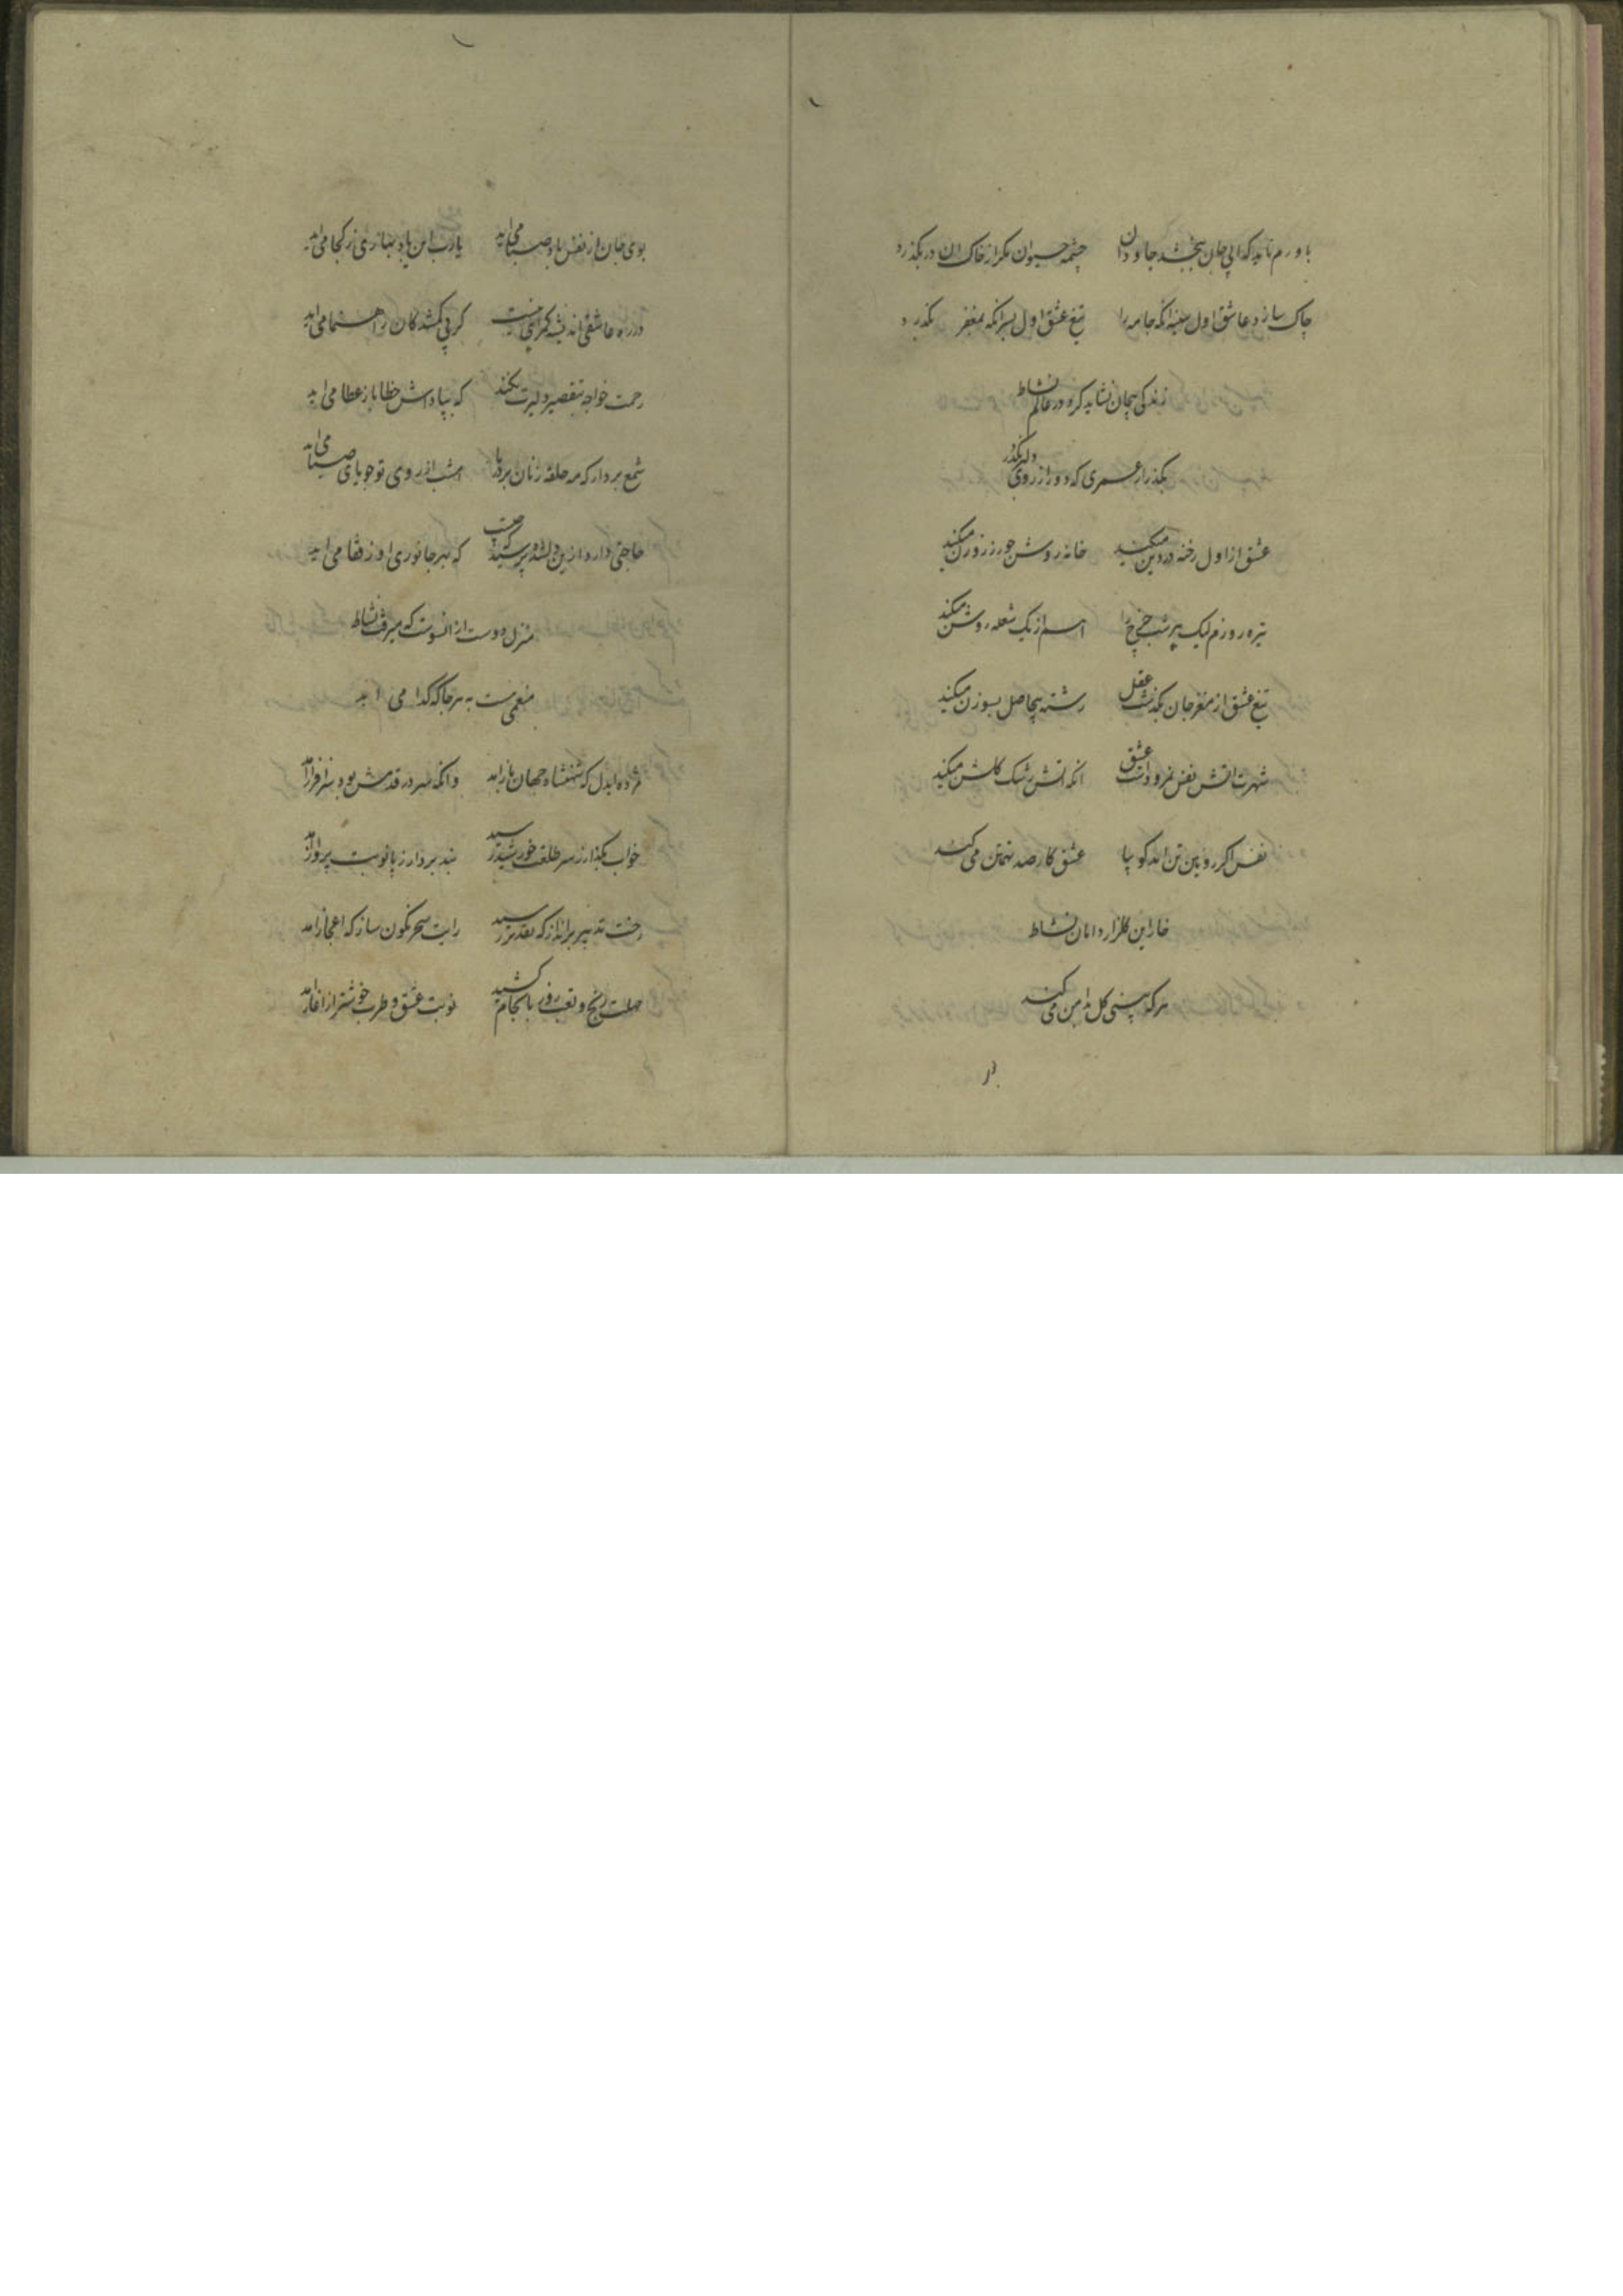 باورم ناید که ابی جان ببخشد جاودان چشمه حیوان مکر از خاک ان در بکذرد
چاک سازد عاشق اول سینه انکه جامه را تیغ عشق اول بسر انکه بمغفر بکذرد
زندکی بیجان نشاید کرد در عالم نشاط
بکذر از عمری که دور از روی دلبر بکذرد
عشق از اول رخنه در دین میکند خانه روشن خور ز روزن میکند
تیره روزم لیک پیر شب چراغ از یک شعله روشن میکند
تیغ عشق از مغز جان بکذشت عقل رشته بیحاصل بسوزن میکند
شهرت اتش نفس نمرود است عشق انکه اتش رشک کلشن میکند
نفس اکر رویین تن اید کو بیا عشق کار صد تهمتن می کند
خار این کلزار و دامان نشاط
هر که بینی کل بدامن می کند
بوی جان از نفس باد صبا می اید یارب این باد بهاری ز کجا می اید
در ره عاشقی اندیشه کمراهی نیست کز پی کمشدکان راهنما می اید
رحمت خواجه بتقصیر دلیرت نکند که بپاداش خطا باز عطا می اید
شمع بردار که مه حلقه زنان بر در ما امشب از روی تو جویای صبا می اید
حاجتی دارد ازین دلشده پرسید که چیست که بهر جا توری او ز قفا می اید
منزل دوست از انسوست که میرفت نشاط
منعمی هست به هر جا که کدا می اید
مژده ایدل که شهنشاه جهان باز امد وانکه سر در قدمش بود سرافراز امد
خواب بکذار ز سر طلعت خورشید رسید بند بردار ز پا نوبت پرواز امد
رخت تدبیر برانداز که تقدیر رسید رایت سحر نکون ساز که اعجاز امد
مهلت رنج و تعب روز بانجام کشید نوبت عشق و طرب خوشتر از اغاز امد